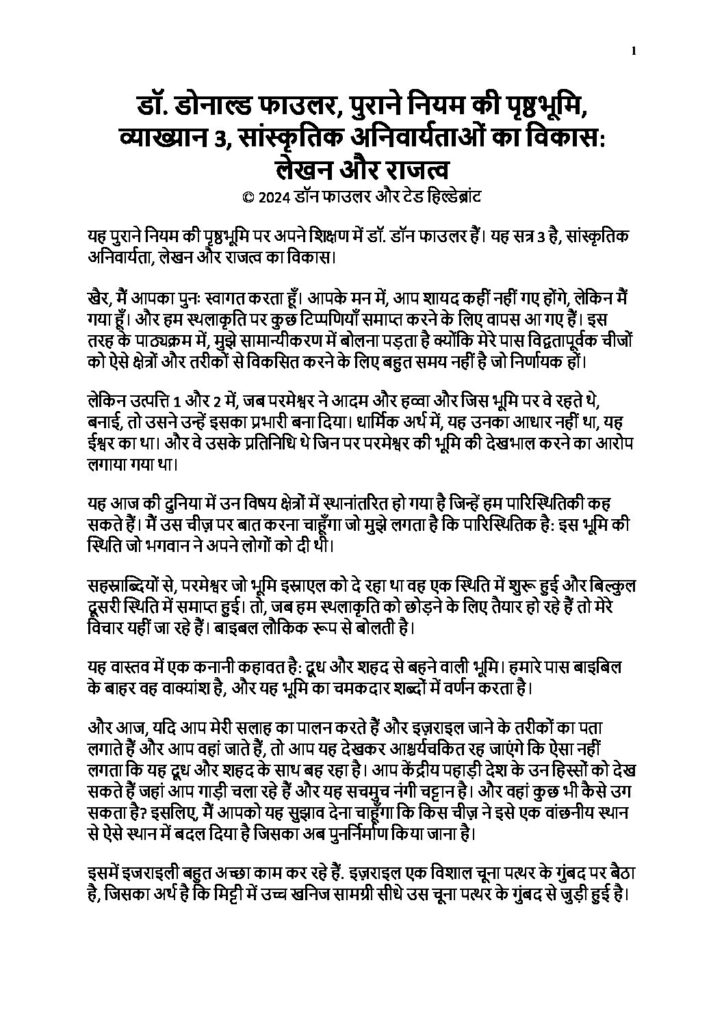 1
डॉ. डोनाल्ड फाउलर, पुराने नियम की पृष्ठभूमि,
व्याख्यान 3, सांस्कृतिक अनिवार्यताओं का विकास:
लेखन और राजत्व
© 2024 डॉन फाउलर और टेड हिल्डेब्रांट
यह पुराने नियम की पृष्ठभूमि पर अपने शिक्षण में डॉ. डॉन फाउलर हैं। यह सत्र 3 है, सांस्कृतिक
अनिवार्यता, लेखन और राजत्व का विकास।
खैर, मैं आपका पुनः स्वागत करता हूँ। आपके मन में, आप शायद कहीं नहीं गए होंगे, लेकिन मैं
गया हूँ। और हम स्थलाकृति पर कुछ टिप्पणियाँ समाप्त करने के लिए वापस आ गए हैं। इस
तरह के पाठ्यक्रम में, मुझे सामान्यीकरण में बोलना पड़ता है क्योंकि मेरे पास विद्वतापूर्वक चीजों
को ऐसे क्षेत्रों और तरीकों से विकसित करने के लिए बहुत समय नहीं है जो निर्णायक हों।
लेकिन उत्पत्ति 1 और 2 में, जब परमेश्वर ने आदम और हव्वा और जिस भूमि पर वे रहते थे,
बनाई, तो उसने उन्हें इसका प्रभारी बना दिया। धार्मिक अर्थ में, यह उनका आधार नहीं था, यह
ईश्वर का था। और वे उसके प्रतिनिधि थे जिन पर परमेश्वर की भूमि की देखभाल करने का आरोप
लगाया गया था।
यह आज की दुनिया में उन विषय क्षेत्रों में स्थानांतरित हो गया है जिन्हें हम पारिस्थितिकी कह
सकते हैं। मैं उस चीज़ पर बात करना चाहूँगा जो मुझे लगता है कि पारिस्थितिक है: इस भूमि की
स्थिति जो भगवान ने अपने लोगों को दी थी।
सहस्राब्दियों से, परमेश्वर जो भूमि इस्राएल को दे रहा था वह एक स्थिति में शुरू हुई और बिल्कुल
दूसरी स्थिति में समाप्त हुई। तो, जब हम स्थलाकृति को छोड़ने के लिए तैयार हो रहे हैं तो मेरे
विचार यहीं जा रहे हैं। बाइबल लौकिक रूप से बोलती है।
यह वास्तव में एक कनानी कहावत है: दूध और शहद से बहने वाली भूमि। हमारे पास बाइबिल
के बाहर वह वाक्यांश है, और यह भूमि का चमकदार शब्दों में वर्णन करता है।
और आज, यदि आप मेरी सलाह का पालन करते हैं और इज़राइल जाने के तरीकों का पता
लगाते हैं और आप वहां जाते हैं, तो आप यह देखकर आश्चर्यचकित रह जाएंगे कि ऐसा नहीं
लगता कि यह दूध और शहद के साथ बह रहा है। आप केंद्रीय पहाड़ी देश के उन हिस्सों को देख
सकते हैं जहां आप गाड़ी चला रहे हैं और यह सचमुच नंगी चट्टान है। और वहां कुछ भी कैसे उग
सकता है? इसलिए, मैं आपको यह सुझाव देना चाहूँगा कि किस चीज़ ने इसे एक वांछनीय स्थान
से ऐसे स्थान में बदल दिया है जिसका अब पुनर्निर्माण किया जाना है।
इसमें इजराइली बहुत अच्छा काम कर रहे हैं. इज़राइल एक विशाल चूना पत्थर के गुंबद पर बैठा
है, जिसका अर्थ है कि मिट्टी में उच्च खनिज सामग्री सीधे उस चूना पत्थर के गुंबद से जुड़ी हुई है।